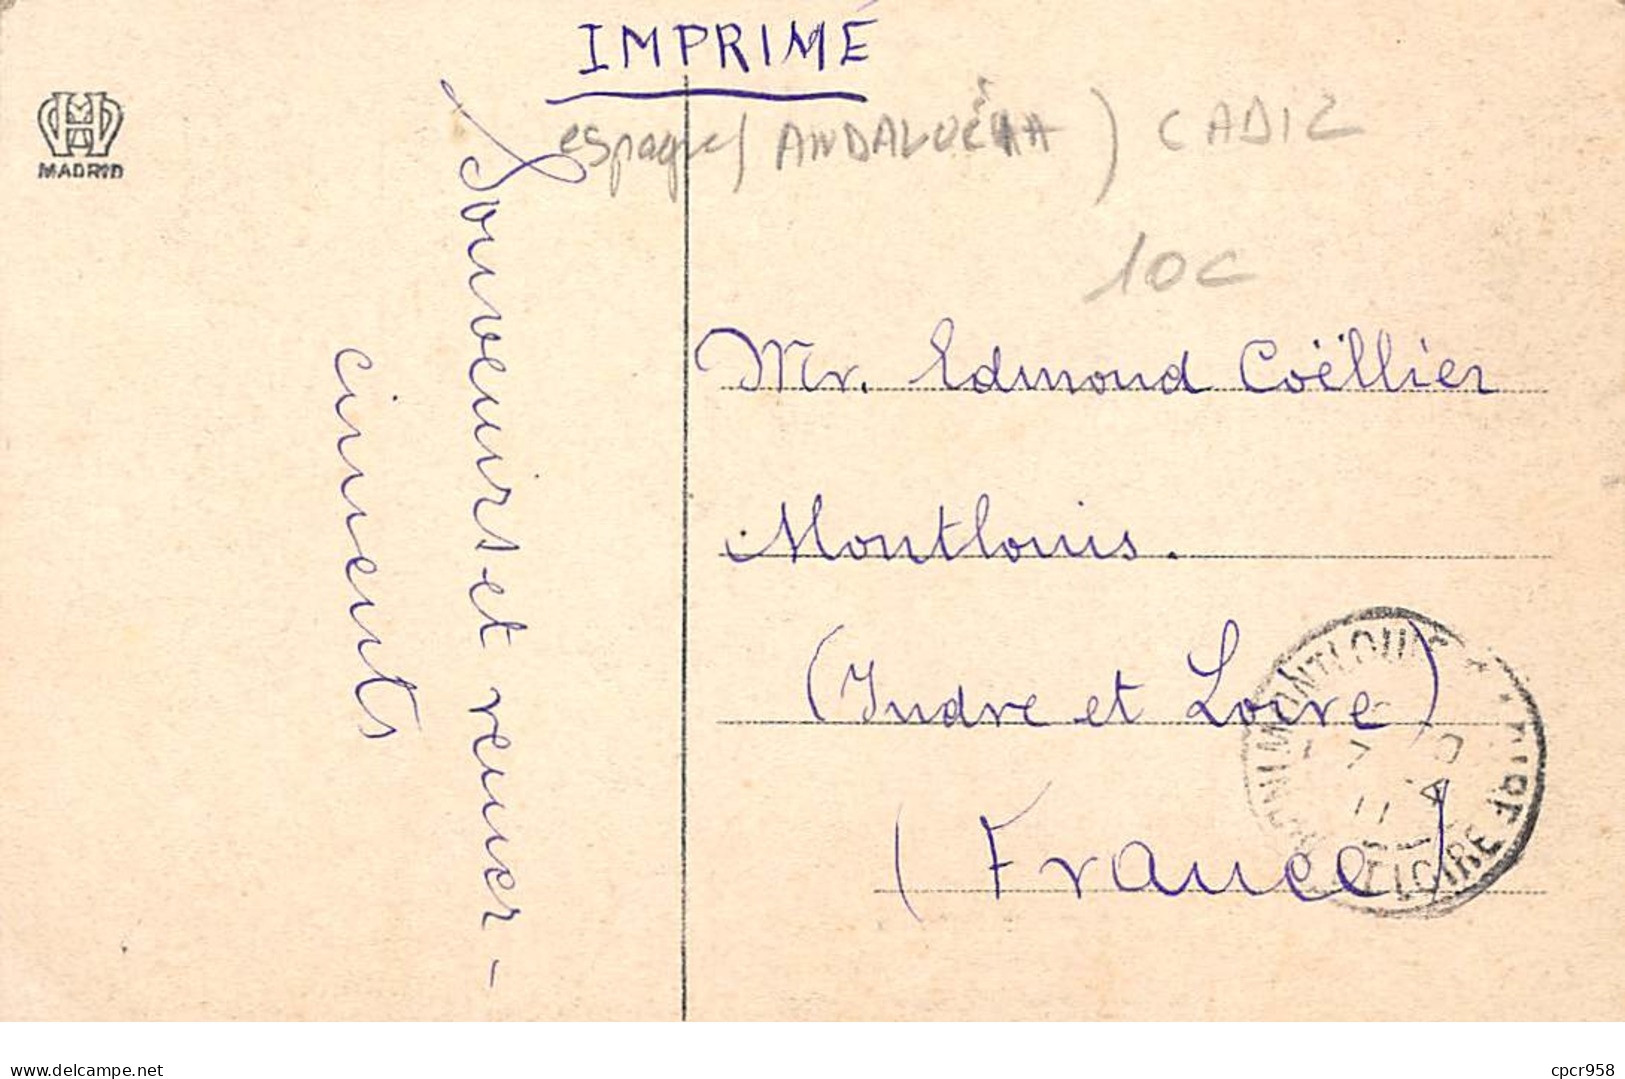 IMPRIMÉ
MADRID
espagne (ANDALUCIA) CADIZ
10c
Souvenirs et remer-
ciments
Mr. Edmond Coëllier
Montlouis.
(Indre et Loire)
(France)
MONTLOUIS
LOIRE
delcampe.net
cpcr958